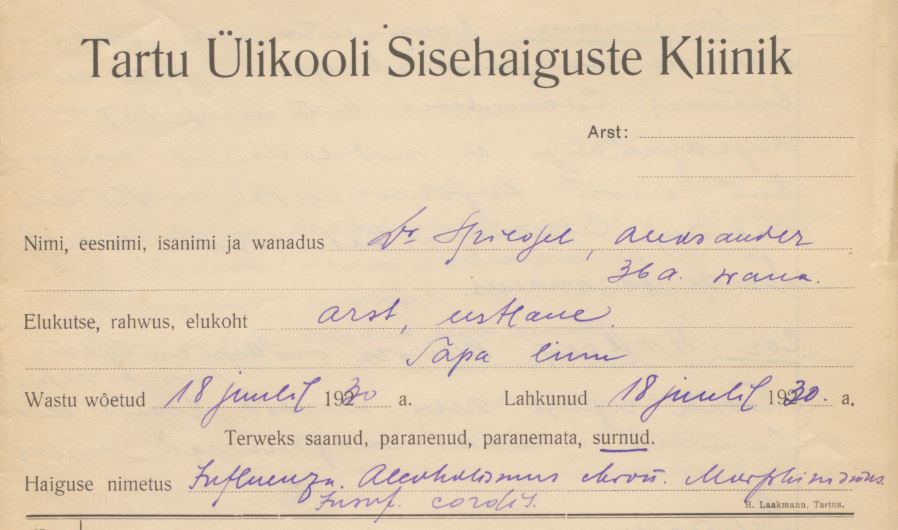 Tartu Ülikooli Sisehaiguste Kliinik
Arst:
Nimi, eesnimi, isanimi ja wanadus Dr Spiegel, Aleksander
36 a. wana.
Elukutse, rahwus, elukoht arst, eestlane.
Tapa linn
Wastu wõetud 18 juulil 1930 a. Lahkunud 18 juulil 1930. a.
Terweks saanud, paranenud, paranemata, surnud.
Haiguse nimetus Influenza. Alcoholismus chron. Morphinismus.
Insuf. cordis.
H. Laakmann, Tartus.